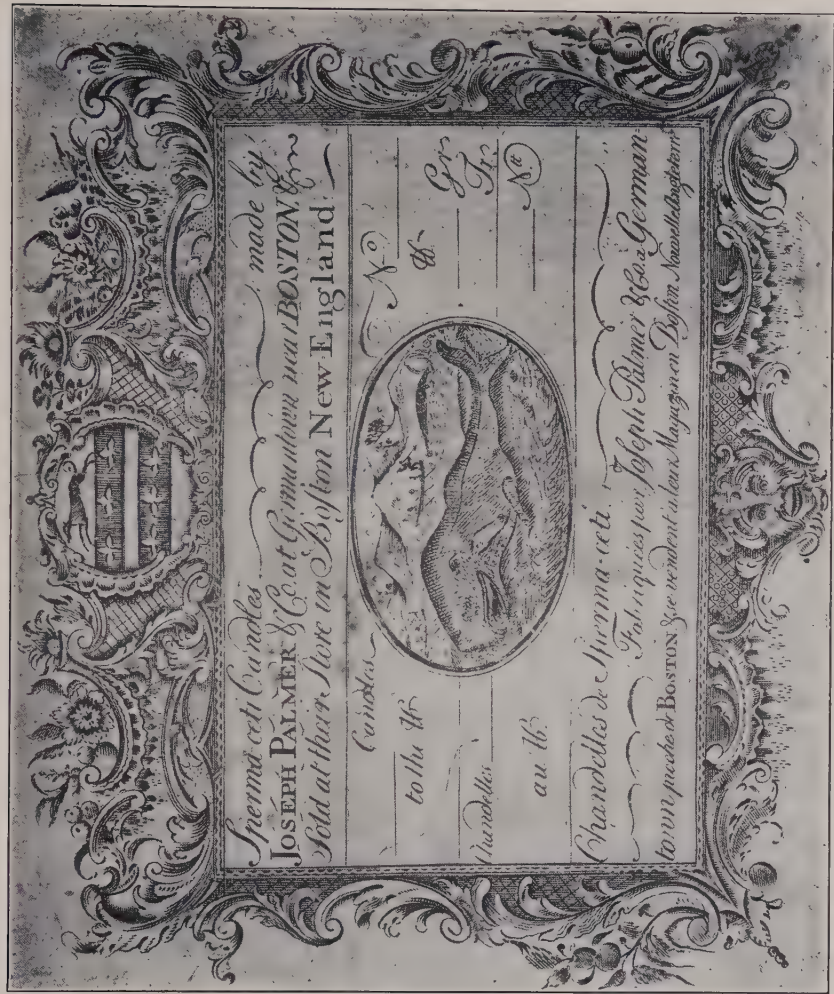 Sperma ceti Candles made by
JOSEPH PALMER & Co. at Germantown near BOSTON, &
Sold at their Store in Boston New England
Candles No
to the lb &
Gr
Chandelles Tr
au lb Nt
Chandelles de Sperma-ceti
Fabriquées par Joseph Palmer & Co. a German-
town proche de BOSTON & se vendent a leur Magazon en Boston Nouvelle Angleterre